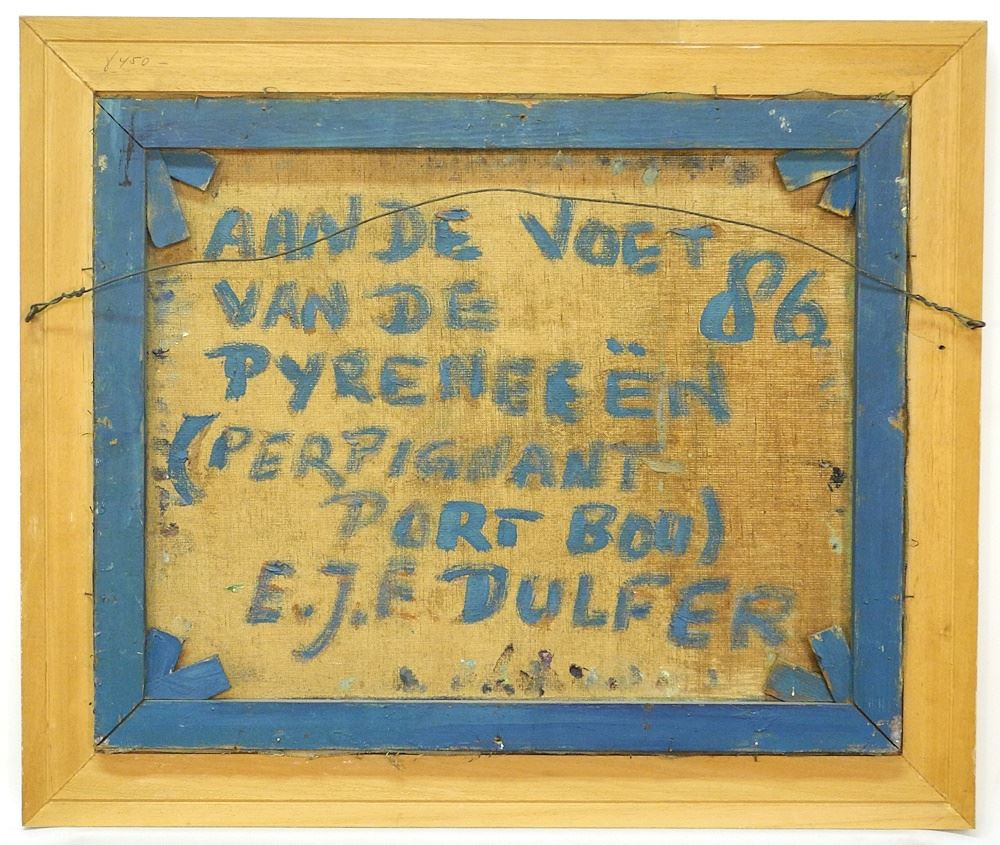 AAN DE VOET
VAN DE 86
PYRENEEËN
(PERPIGNANT
PORT BOU)
E.J.E DULFER